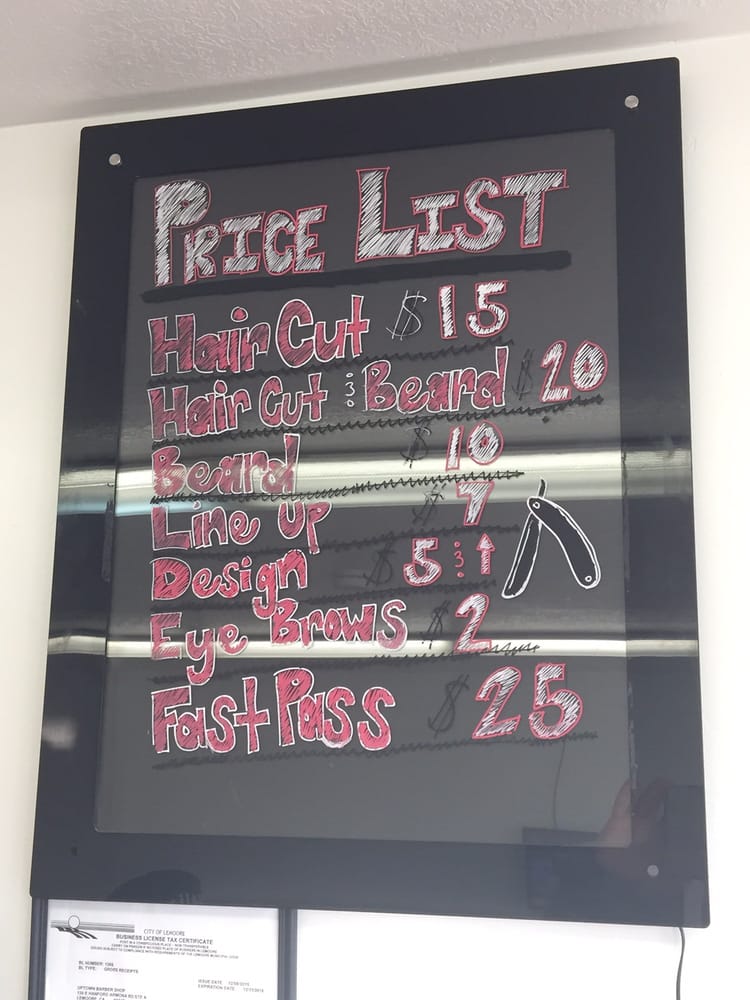 PRICE LIST
Hair Cut $ 15
Hair Cut & Beard $ 20
Beard $ 10
Line up $ 7
Design $ 5 & ↑
Eye Brows $ 2
Fast Pass $ 25
CITY OF LEMOORE
BUSINESS LICENSE TAX CERTIFICATE
BL TYPE: GROSS RECEIPTS
ISSUE DATE
EXPIRATION DATE
UPTOWN BARBER SHOP
LEMOORE, CA